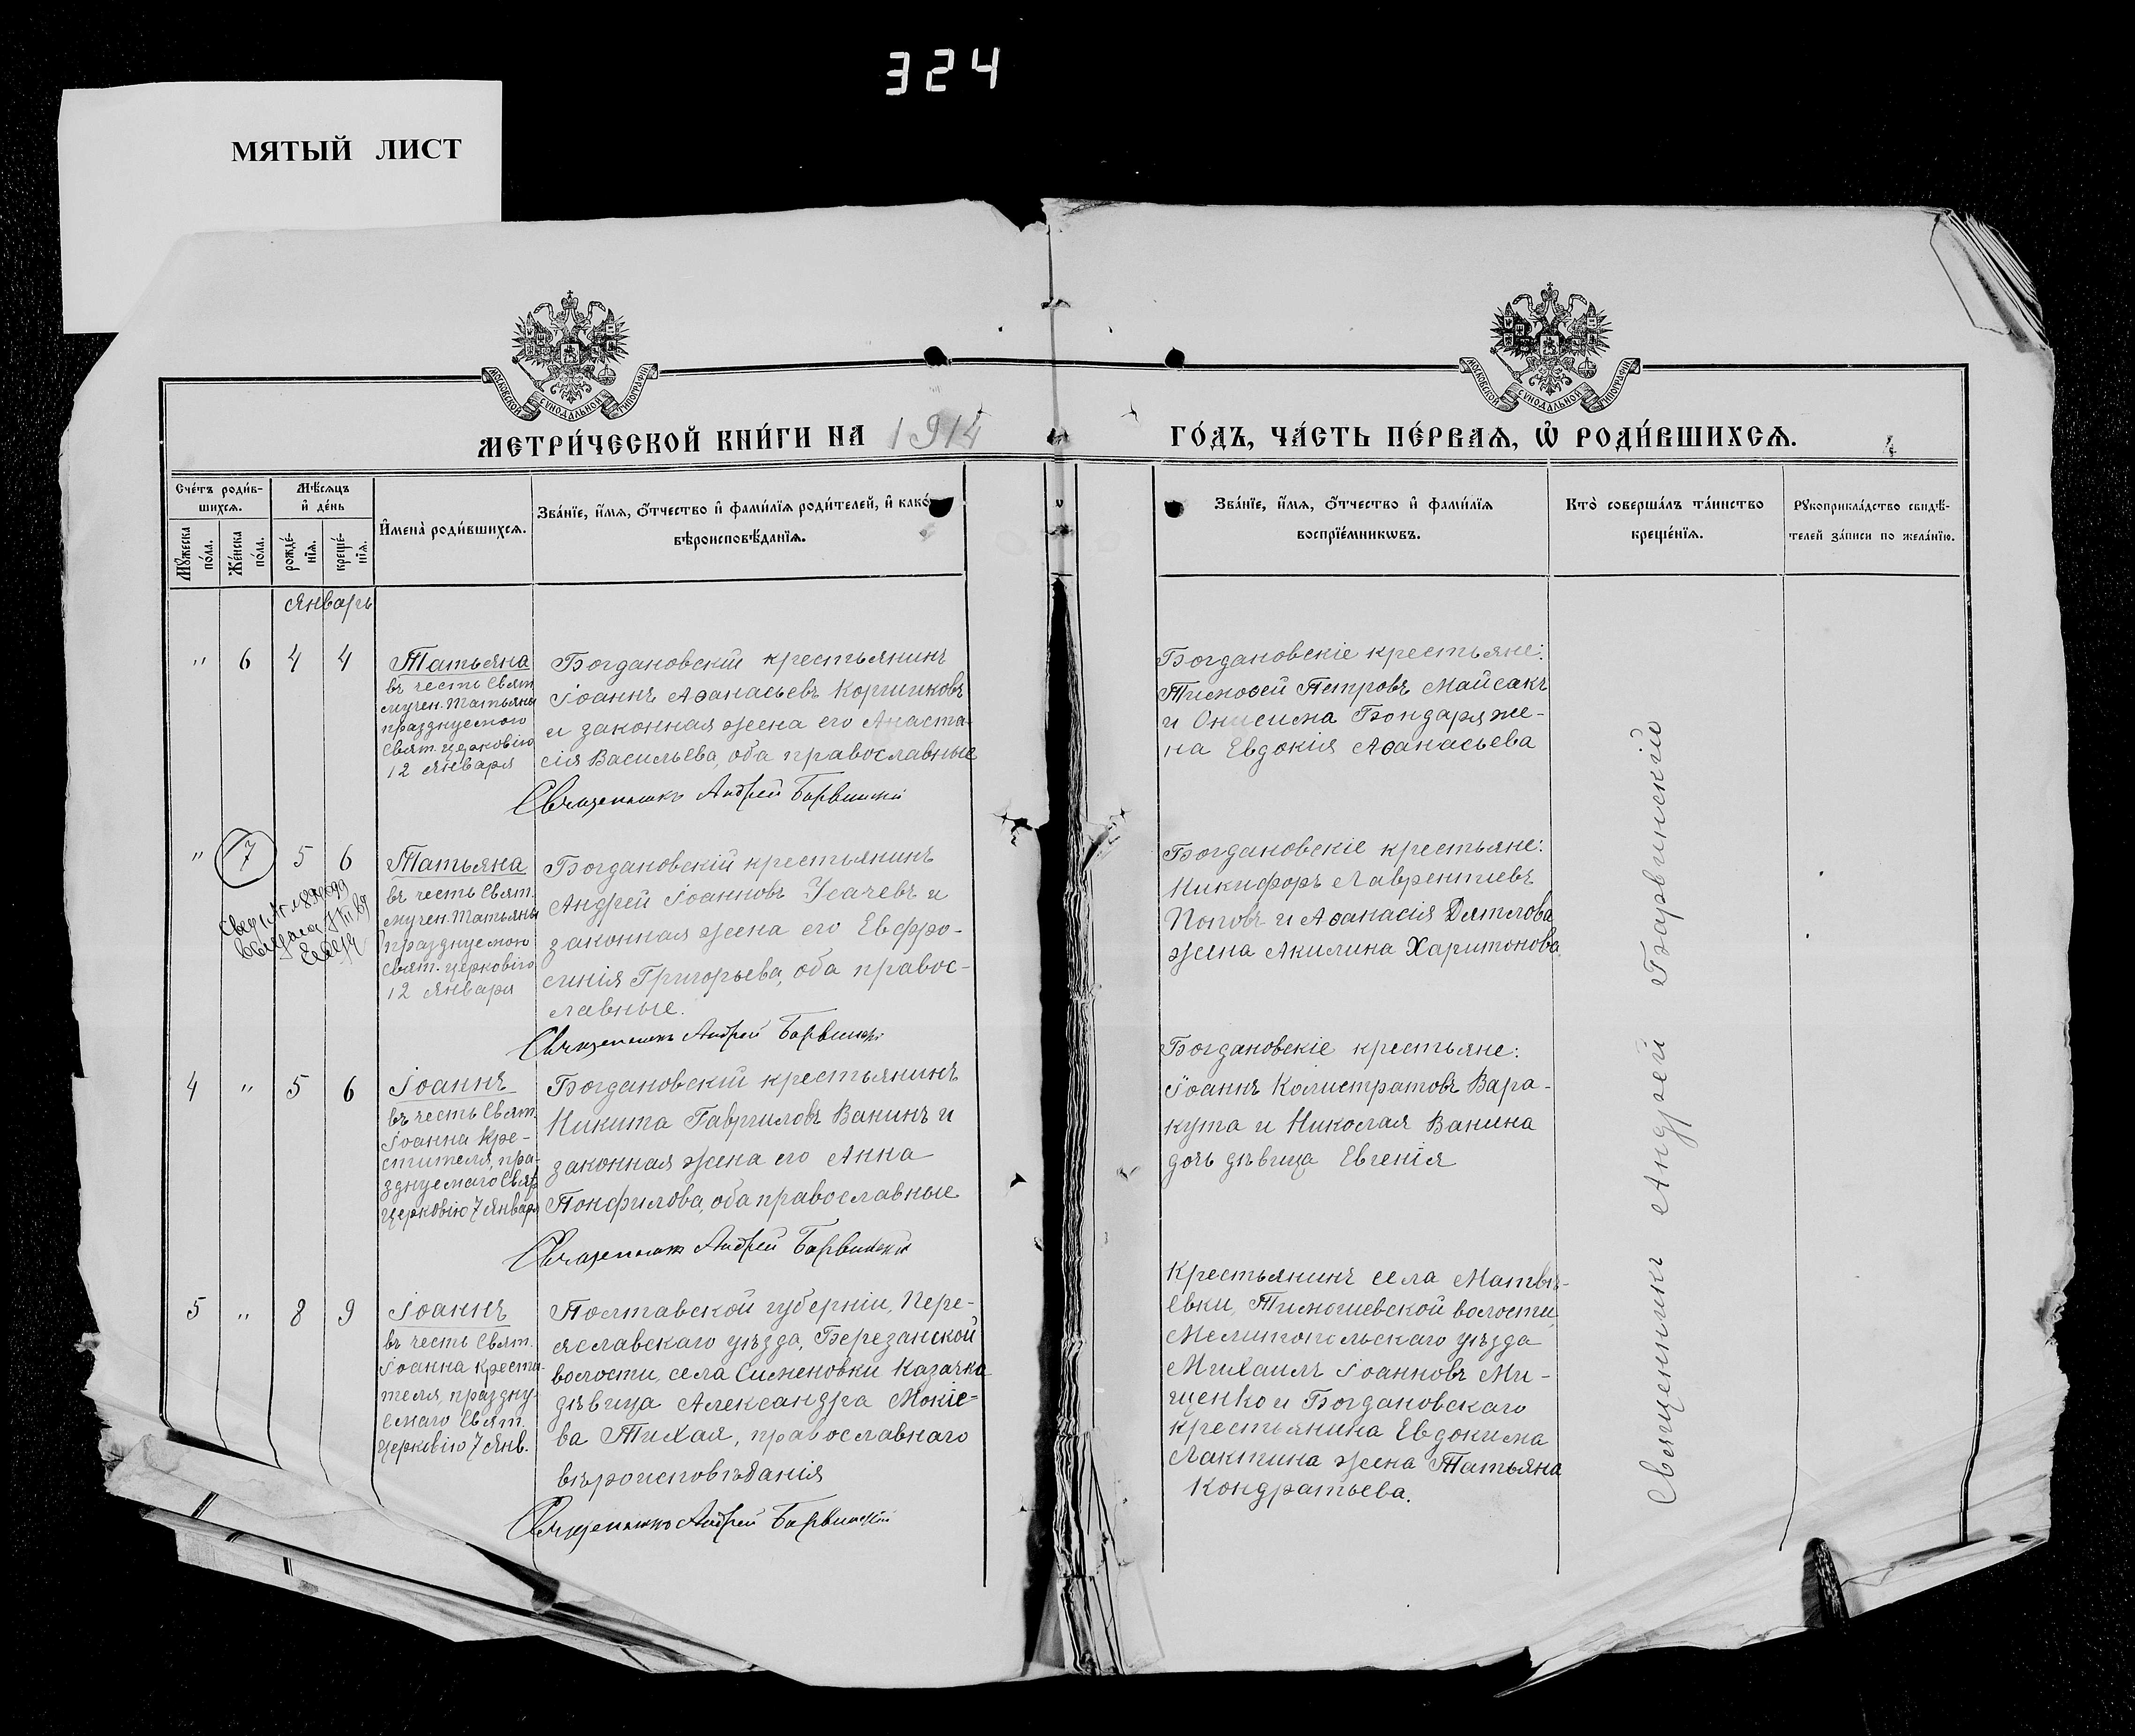 324
МЯТЫЙ ЛИСТ
МОСКОВСКОЙ СУНОДАЛЬНОЙ ТИПОГРАФІИ
МОСКОВСКОЙ СУНОДАЛЬНОЙ ТИПОГРАФІИ
МЕТРИ́ЧЕСКОЙ КНИ́ГИ НА 1914
ГО́ДЪ, ЧА́СТЬ ПЕ́РВАѦ, Ѡ҆ РОДИ́ВШИХСѦ.
4
Сче́тъ роди́в-
шихсѧ.
Мѣ́сѧцъ
и҆ де́нь
Мꙋ́жеска
по́ла.
Же́нска
по́ла.
рожде́-
нїѧ.
креще́-
нїѧ.
И҆мена̀ роди́вшихсѧ.
Зва́нїе, и҆́мѧ, ѻ҆́тчество и҆ фами́лїѧ роди́телей, и҆ како́
вѣроисповѣ́данїѧ.
Зва́нїе, и҆́мѧ, ѻ҆́тчество и҆ фами́лїѧ
воспрїе́мникѡвъ.
Кто̀ соверша́лъ та́инство
креще́нїѧ.
Рꙋкоприкла́дство свидѣ́-
телей за́писи по жела́нїю.
Январь
" 6 4 4
Татьяна
въ честь Свят.
мучен. Татьяны
празднуемою
Свят. церковію
12 Января
Богдановскій крестьянинъ
Іоаннъ Аѳанасьевъ Коршиковъ
и законная жена его Анаста-
сія Васильева, оба православные
Священникъ Андрей Барвинскій
Богдановскіе крестьяне:
Тимоѳей Петровъ Майсакъ
и Онисима Бондаря же-
на Евдокія Аѳанасьева
" 7 5 6
Татьяна
въ честь Свят.
мучен. Татьяны
празднуемою
Свят. церковію
12 Января
Богдановскій крестьянинъ
Андрей Іоанновъ Усачевъ и
законная жена его Евфро-
синія Григорьева, оба правос-
лавные.
Священникъ Андрей Барвинскій
Богдановскіе крестьяне:
Никифоръ Лаврентиевъ
Поповъ и Аѳанасія Дятлова
жена Акилина Харитонова.
4 " 5 6
Іоаннъ
въ честь Свят.
Іоанна Кре-
стителя, пра-
зднуемаго Свят.
церковію 7 Января
Богдановскій крестьянинъ
Никита Гавриловъ Ванинъ и
законная жена его Анна
Понфилова, оба православные
Священникъ Андрей Барвинскій
Богдановскіе крестьяне:
Іоаннъ Калистратовъ Вара-
кута и Николая Ванина
дочь дѣвица Евгенія
5 " 8 9
Іоаннъ
въ честь Свят.
Іоанна Крести-
теля, праздну-
емаго Свят.
церковію 7 Янв.
Полтавской губерніи, Пере-
яславскаго уѣзда, Березанской
волости, села Семеновки Казачка
дѣвица Александра Мокіе-
ва Тихая, православнаго
вѣроисповѣданія
Священникъ Андрей Барвинскій
Крестьянинъ села Матвѣ-
евки, Тимошевской волости,
Мелитопольскаго уѣзда
Михаилъ Іоанновъ Ми-
щенко и Богдановскаго
крестьянина Евдокима
Лактина жена Татьяна
Кондратьева.
Священникъ Андрей Барвинскій